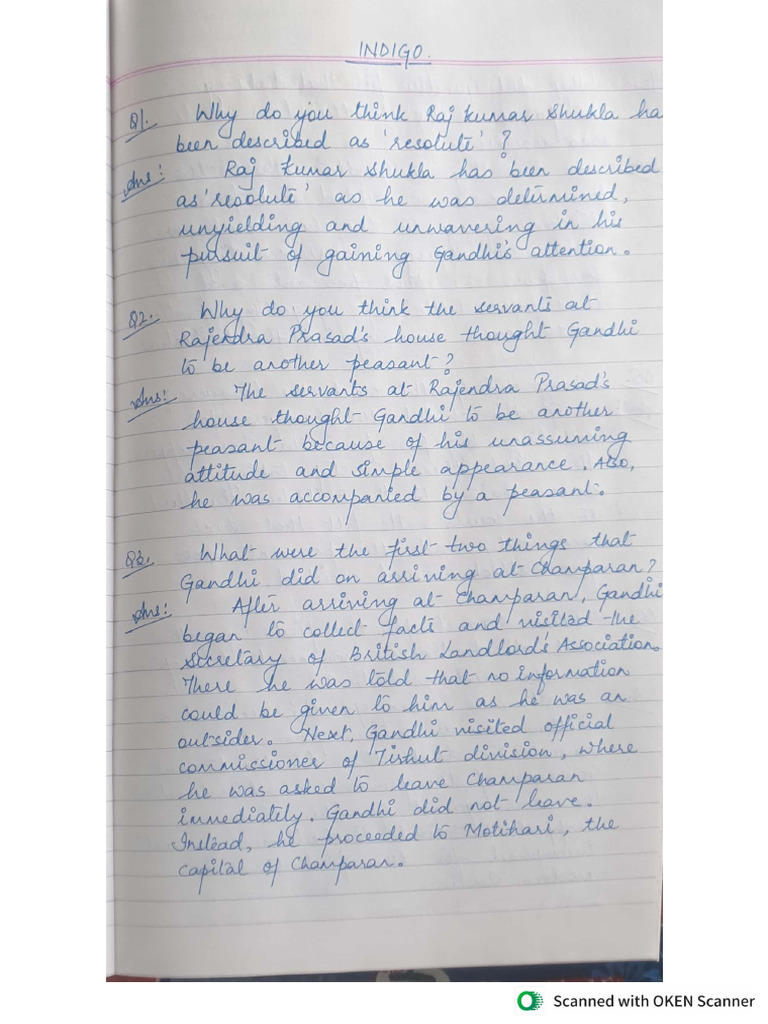 INDIGO.
Q1. Why do you think Raj Kumar Shukla ha
been described as 'resolute' ?
Ans: Raj Kumar Shukla has been described
as 'resolute' as he was determined,
unyielding and unwavering in his
pursuit of gaining Gandhi's attention.
Q2. Why do you think the servants at
Rajendra Prasad's house thought Gandhi
to be another peasant?
Ans: The servants at Rajendra Prasad's
house thought Gandhi to be another
peasant because of his unassuming
attitude and simple appearance. Also,
he was accompanied by a peasant.
Q3. What were the first two things that
Gandhi did on arriving at Champaran?
Ans: After arriving at Champaran, Gandhi
began to collect facts and visited the
Secretary of British Landlord's Association.
There he was told that no information
could be given to him as he was an
outsider. Next, Gandhi visited official
commissioner of Tirhut division, where
he was asked to leave Champaran
immediately. Gandhi did not leave.
Instead, he proceeded to Motihari, the
capital of Champaran.
Scanned with OKEN Scanner